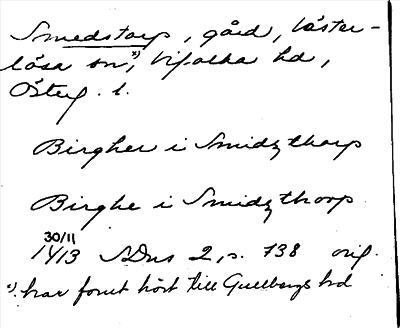 Smedstorp, gård, Väster-
lösa sn,*) Vifolka hd,
Österg. l.
Birgher i Smidzthorp
Birghe i Smidzthorp
30/11
1413 SDns 2, s. 738 orig.
*) har förut hört till Gullbergs hd